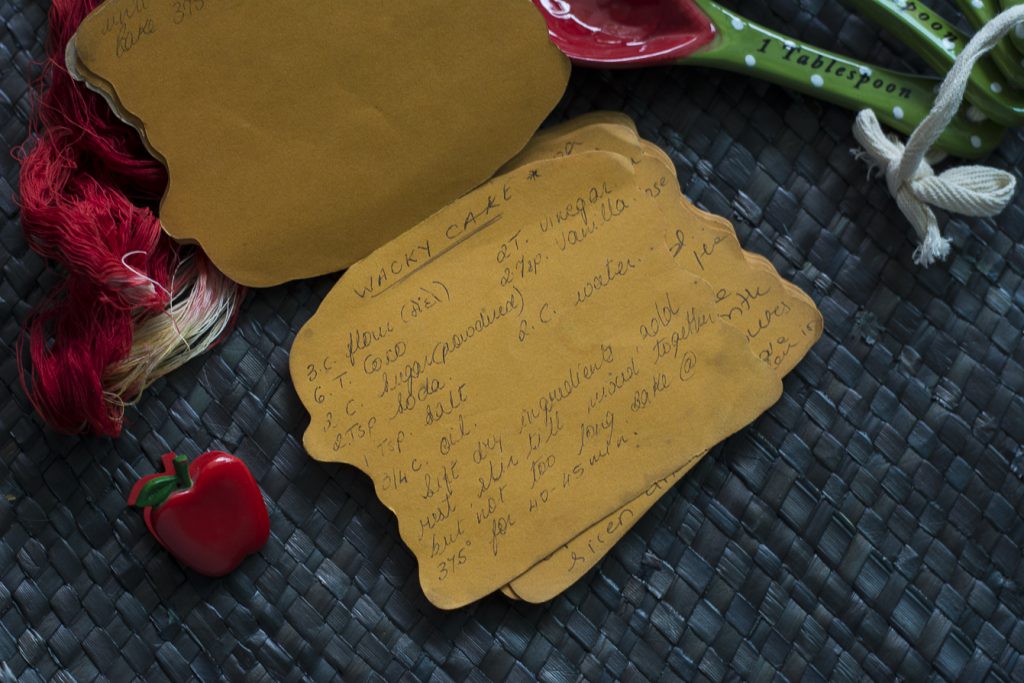 Bake 375°
1 Tablespoon
poon
WACKY CAKE *
3. C. flour (       )
6. T. Coco
3. C. Sugar (powdered)
2 Tsp. Soda
1 Tsp. Salt
3/4 C. oil.
2 T. vinegar
2 Tsp. Vanilla.
2. C. water.
Sift dry ingredients, add
rest stir till mixed together
but not too long Bake @
375° for 40-45 min.